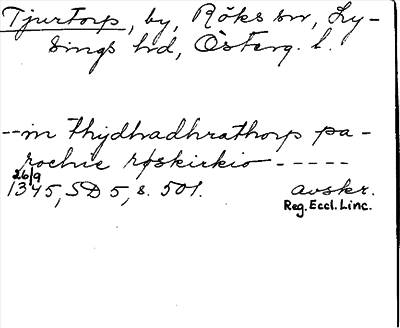 Tjurtorp, by, Röks sn, Ly-
sings hd, Österg. l.
--in thydhadhrathorp pa-
rochie røskirkio -----
26/9
1345, SD 5, s. 501. avskr.
Reg. Eccl. Linc.